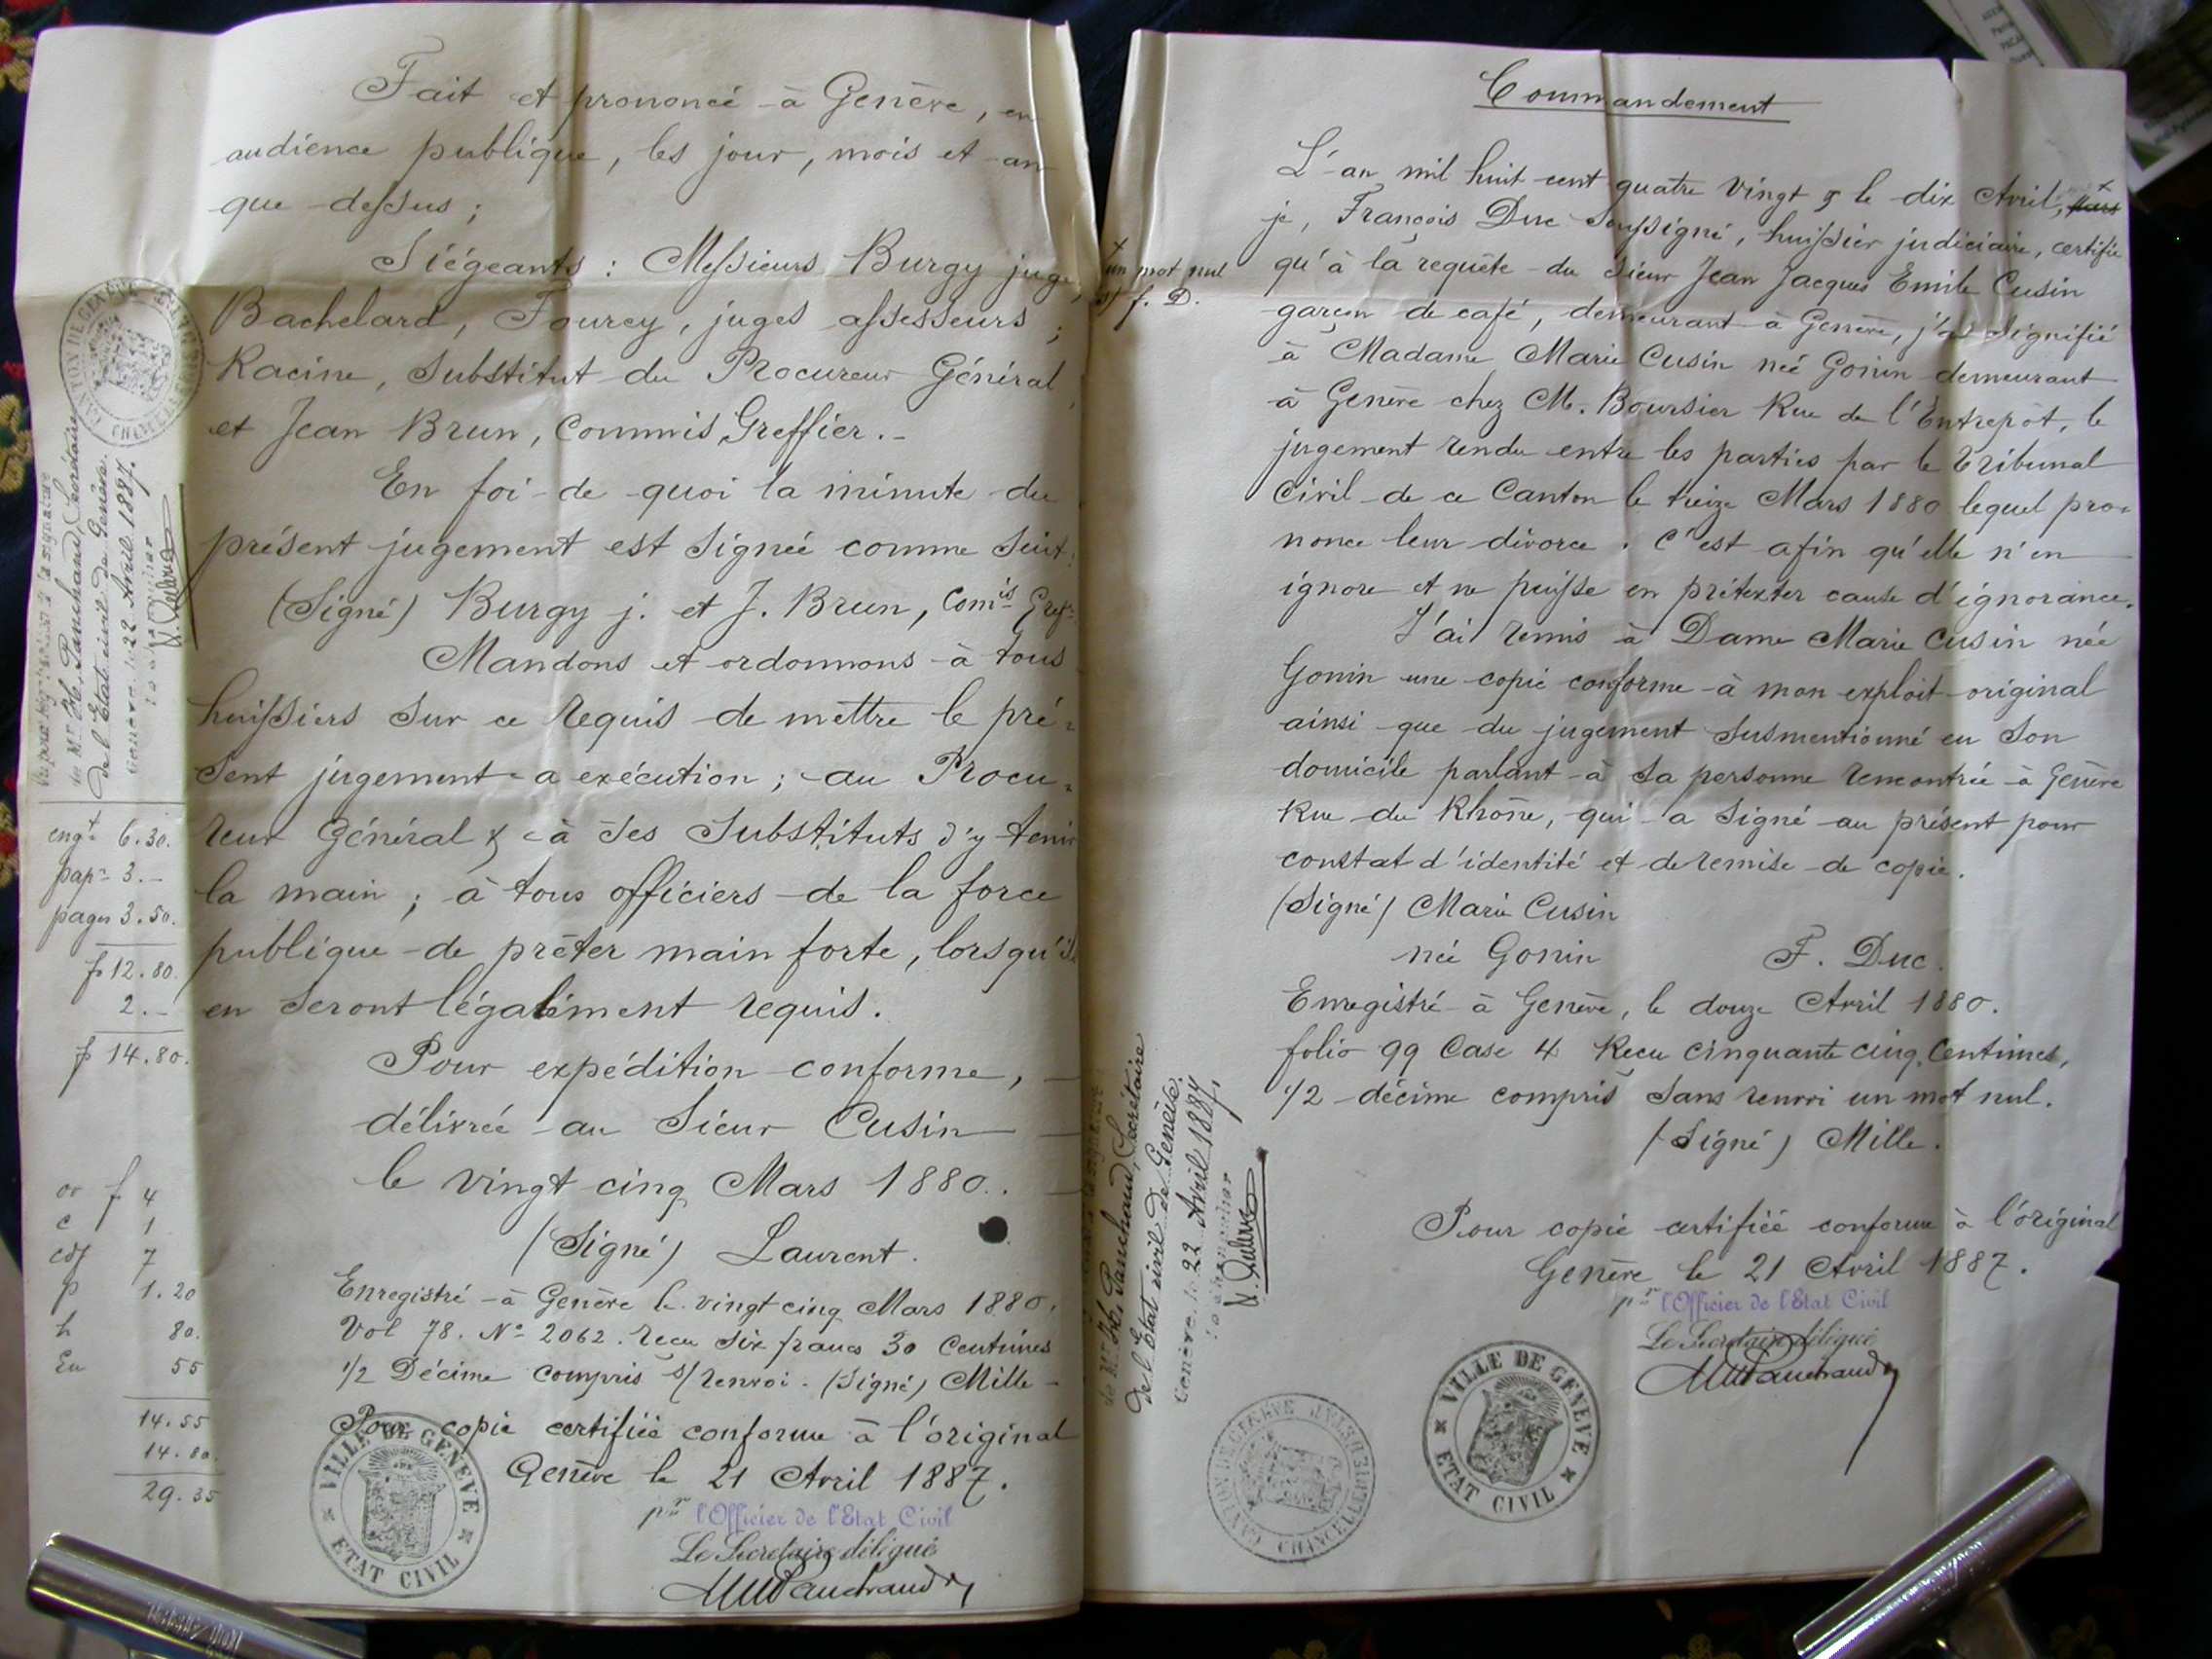 Fait et prononcé à Genève, en
audience publique, les jour, mois et an
que dessus ;
Siégeants : Messieurs Burgy juge,
Bachelard, Fourcy, juges assesseurs ;
Racine, Substitut du Procureur Général,
et Jean Brun, Commis Greffier. -
En foi de quoi la minute du
présent jugement est signée comme suit :
(Signé) Burgy j. et J. Brun, Comis Greff.
Mandons et ordonnons à tous
huissiers sur ce requis de mettre le pré=
sent jugement a exécution ; au Procu=
reur Général & à ses Substituts d'y tenir
la main ; à tous officiers de la force
publique de prêter main forte, lorsqu'ils
en seront légalement requis.
Pour expédition conforme,
délivrée au Sieur Cusin
le vingt cinq Mars 1880.
(Signé) Laurent.
Enregistré à Genève le vingt cinq Mars 1880.
Vol 78. No 2062. reçu six francs 30 Centimes
1/2 Décime compris s/ renvoi. (Signé) Mille
Pour copie certifiée conforme à l'original
Genève le 21 Avril 1887.
pr l'Officier de l'Etat Civil
Le Secretaire délégué
VILLE DE GENEVE
ETAT CIVIL
CANTON DE GENÈVE
CHANCELLERIE
de Mr H. Panchaud, Secrétaire
de l'Etat civil de Genève.
Genève, le 22 Avril 1887.
engt 6.30.
papr 3.-
pages 3.50.
f 12.80.
2.-
f 14.80.
or f 4
c 1
cdf 7
p 1.20
h 80.
En 55
14.55
14.80.
29.35
Commandement
L'an mil huit cent quatre vingt & le dix Avril, Mars
je, François Duc soussigné, huissier judiciaire, certifie
qu'à la requête du Sieur Jean Jacques Emile Cusin
garçon de café, demeurant à Genève, j'ai signifié
à Madame Marie Cusin née Gonin demeurant
à Genève chez M. Boursier Rue de l'Entrepôt, le
jugement rendu entre les parties par le Tribunal
Civil de ce Canton le treize Mars 1880 lequel pro=
nonce leur divorce. C'est afin qu'elle n'en
ignore et ne puisse en prétexter cause d'ignorance.
J'ai remis à Dame Marie Cusin née
Gonin une copie conforme à mon exploit original
ainsi que du jugement susmentionné en son
domicile parlant à sa personne rencontrée à Genève
Rue du Rhône, qui a signé au présent pour
constat d'identité et de remise de copie.
(Signé) Marie Cusin
née Gonin F. Duc.
Enregistré à Genève, le douze Avril 1880.
folio 99 Case 4 Reçu cinquante cinq Centimes,
1/2 décime compris sans renvoi un mot nul.
(Signé) Mille.
Pour copie certifiée conforme à l'original
Genève le 21 Avril 1887.
pr l'Officier de l'Etat Civil
Le Secretaire délégué
VILLE DE GENEVE
ETAT CIVIL
x un mot nul
s/ f. D.
de Mr H. Panchaud, Secrétaire
de l'Etat civil de Genève.
Genève, le 22 Avril 1887.
CANTON DE GENEVE
CHANCELLERIE D'ETAT